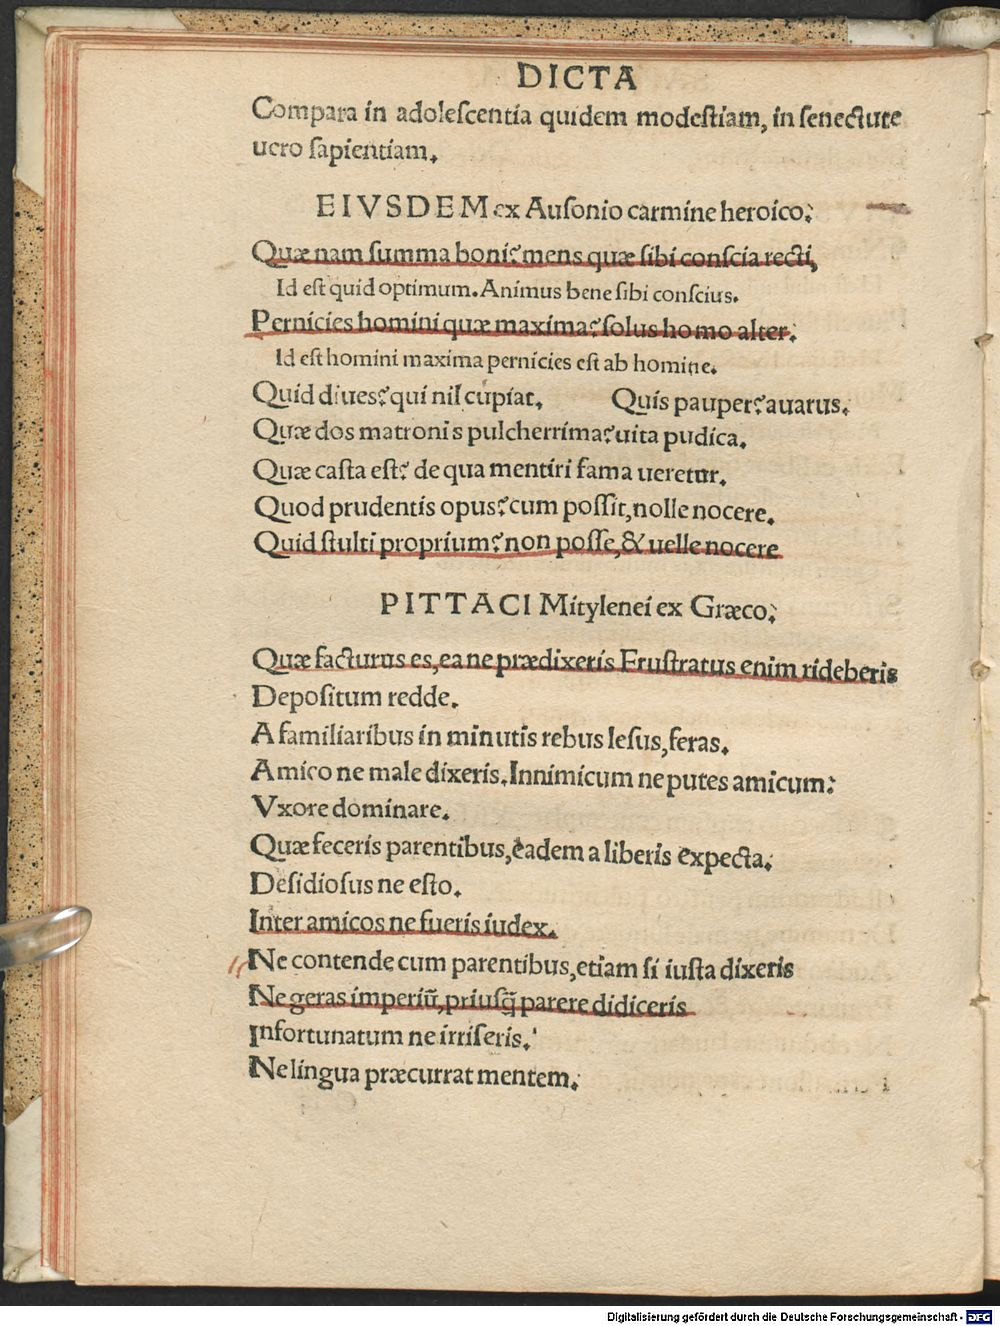 DICTA
Compara in adoleſcentia quidem modeſtiam, in ſenectute
uero ſapientiam.
EIVSDEM ex Auſonio carmine heroico:
Quæ nam ſumma boni? mens quæ ſibi conſcia recti,
Id eſt quid optimum. Animus bene ſibi conſcius.
Pernicies homini quæ maxima? ſolus homo alter.
Id eſt homini maxima pernicies eſt ab homine.
Quid diues? qui nil cupiat. Quis pauper? auarus.
Quæ dos matronis pulcherrima? uita pudica.
Quæ caſta eſt? de qua mentiri fama ueretur.
Quod prudentis opus? cum poſſit, nolle nocere.
Quid ſtulti proprium? non poſſe, & uelle nocere
PITTACI Mitylenei ex Græco:
Quæ facturus es, ea ne prædixeris Fruſtratus enim rideberis
Depoſitum redde.
A familiaribus in minutis rebus leſus, feras.
Amico ne male dixeris. Innimicum ne putes amicum:
Vxore dominare.
Quæ feceris parentibus, eadem a liberis expecta.
Deſidioſus ne eſto.
Inter amicos ne fueris iudex.
Ne contende cum parentibus, etiam ſi iuſta dixeris
Ne geras imperiū, priuſq̃ parere didiceris
Infortunatum ne irriſeris.
Ne lingua præcurrat mentem.
Digitalisierung gefördert durch die Deutsche Forschungsgemeinschaft - DFG